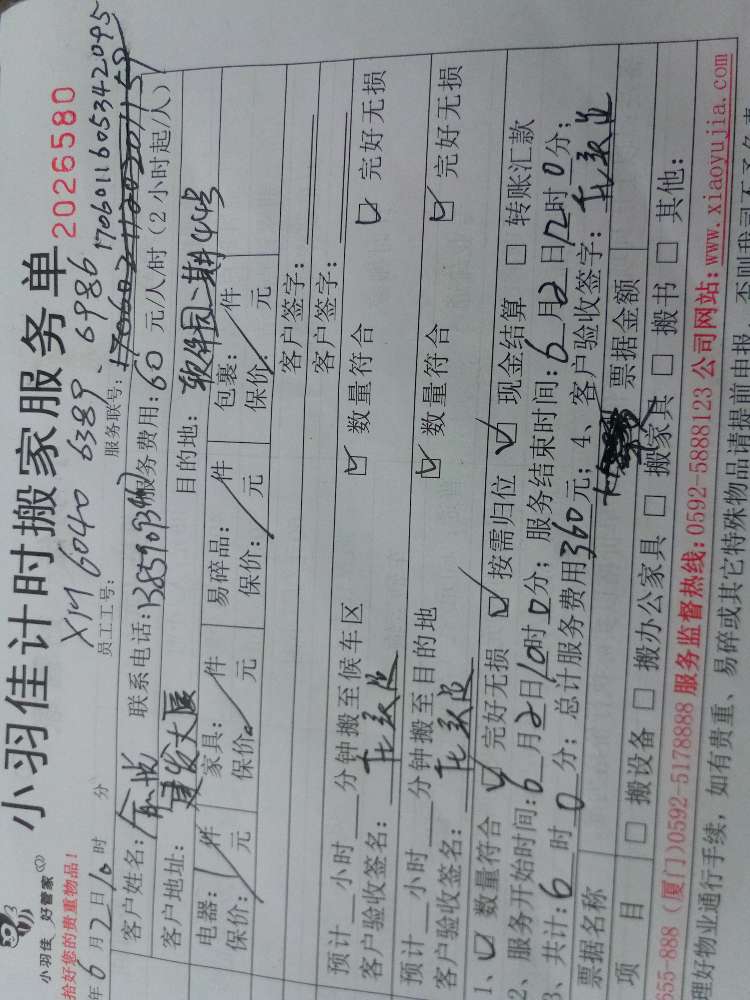 小羽佳计时搬家服务单
小羽佳 好管家
拾好您的贵重物品!
2026580
XM 6040 6389 - 6986
1706011605342095
年6月2日10时 分 员工工号: 服务联号:
客户姓名: 联系电话: 服务费用:60元/人/时(2小时起/人)
客户地址:建发大厦 目的地:软件园二期
电器: 件 家具: 件 易碎品: 件 包裹: 件
保价: 元 保价: 元 保价: 元 保价: 元
客户签字:
客户签字:
预计 小时 分钟搬至候车区 ☑ 数量符合 ☑ 完好无损
客户验收签名:
预计 小时 分钟搬至目的地 ☑ 数量符合 ☑ 完好无损
客户验收签名:
1、☑ 数量符合 ☑ 完好无损 ☑ 按需归位 ☑ 现金结算 □ 转账汇款
2、服务开始时间:6月2日10时0分;服务结束时间:6月2日12时0分;
3、共计:6时0分;总计服务费用360元;4、客户验收签字:
票据名称 票据金额
项 目 □ 搬设备 □ 搬办公家具 □ 搬家具 □ 搬书 □ 其他:
555-888(厦门)0592-5178888 服务监督热线:0592-5888123 公司网站:www.xiaoyujia.com
理好物业通行手续,如有贵重、易碎或其它特殊物品请提前申报,否则我司不予负责